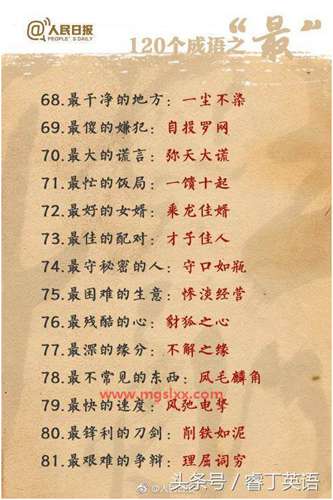 @人民日报
PEOPLE'S DAILY
120个成语之“最”
68.最干净的地方：一尘不染
69.最傻的嫌犯：自报罗网
70.最大的谎言：弥天大谎
71.最忙的饭局：一馈十起
72.最好的女婿：乘龙佳婿
73.最佳的配对：才子佳人
74.最守秘密的人：守口如瓶
75.最困难的生意：惨淡经营
76.最残酷的心：豺狐之心
77.最深的缘分：不解之缘
78.最不常见的东西：凤毛麟角
www.mgslxx.com
79.最快的速度：风驰电掣
80.最锋利的刀剑：削铁如泥
81.最艰难的争辩：理屈词穷
头条号/睿丁英语